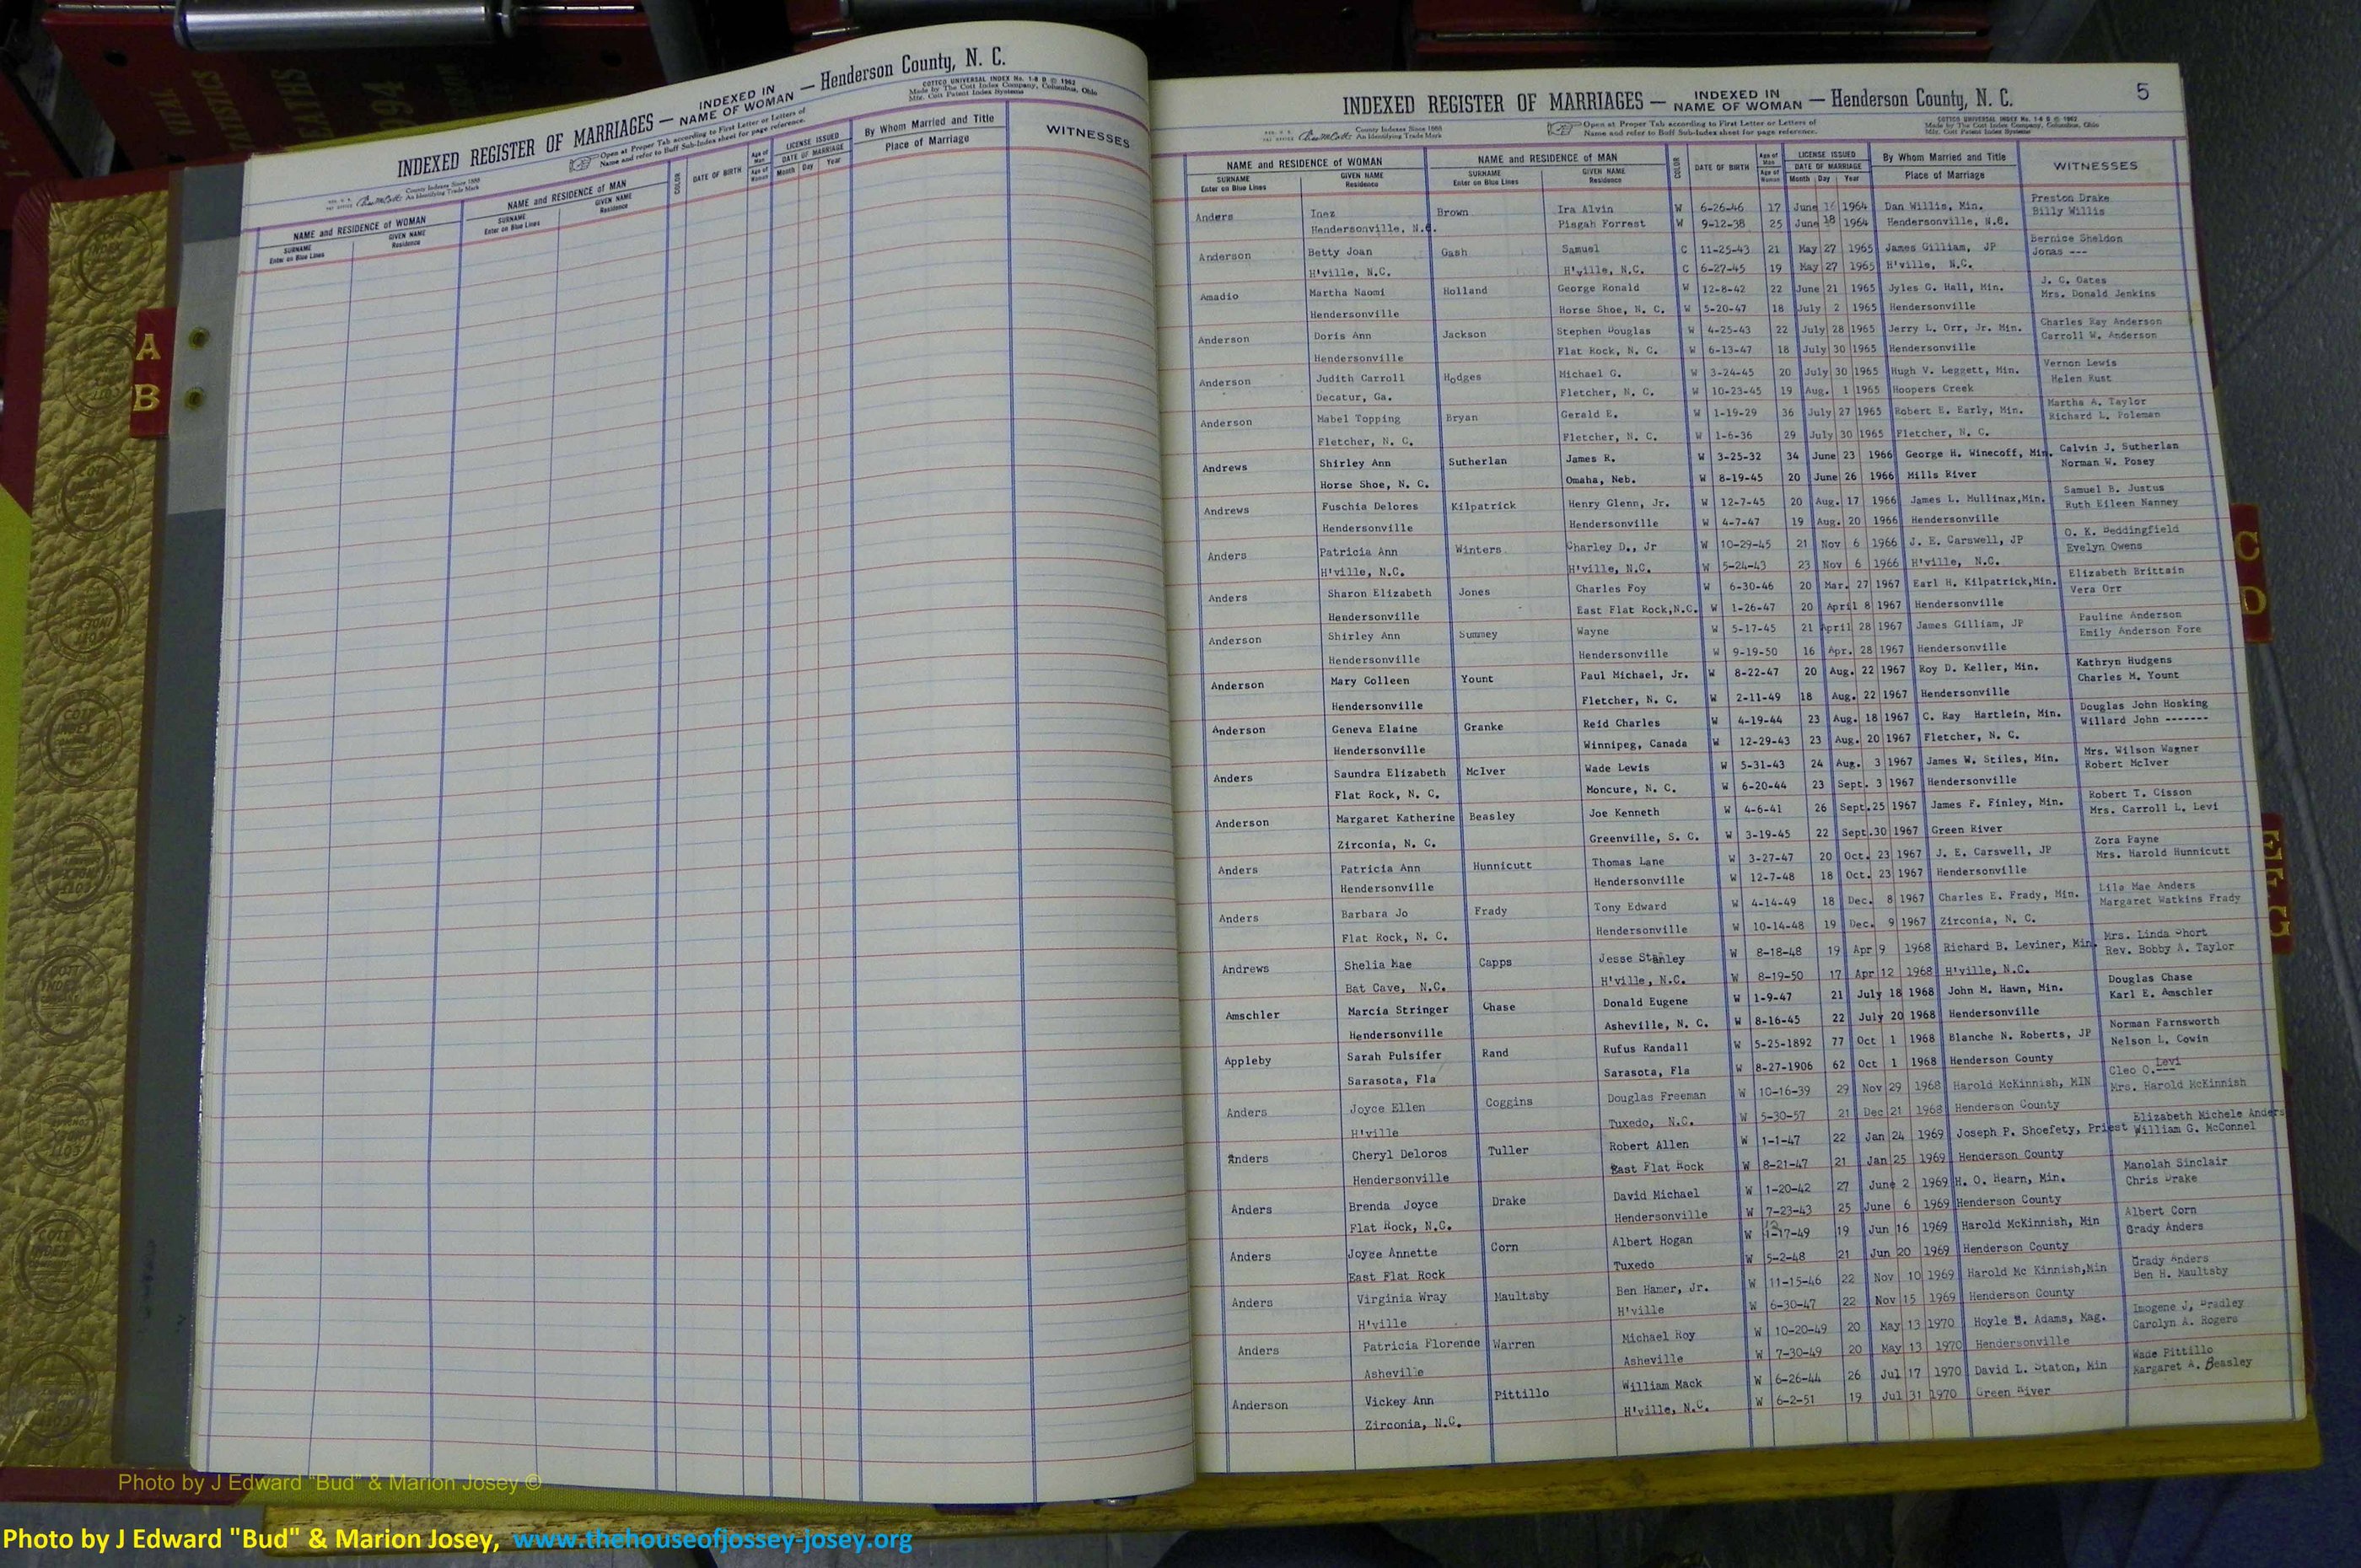 INDEXED REGISTER OF MARRIAGES — INDEXED IN NAME OF WOMAN — Henderson County, N. C.
COTTCO UNIVERSAL INDEX No. 1-8 D © 1962
Made by The Cott Index Company, Columbus, Ohio
Mfg. Cott Patent Index Systems
County Indexes Since 1888
An Identifying Trade Mark
Open at Proper Tab according to First Letter or Letters of
Name and refer to Buff Sub-Index sheet for page reference.
NAME and RESIDENCE OF WOMAN
SURNAME
Enter on Blue Lines
GIVEN NAME
Residence
NAME and RESIDENCE OF MAN
SURNAME
Enter on Blue Lines
GIVEN NAME
Residence
COLOR
DATE OF BIRTH
Age of Man
Age of Woman
LICENSE ISSUED
DATE OF MARRIAGE
Month Day Year
By Whom Married and Title
Place of Marriage
WITNESSES
A
B
INDEXED REGISTER OF MARRIAGES — INDEXED IN NAME OF WOMAN — Henderson County, N. C.
5
County Indexes Since 1888
An Identifying Trade Mark
Open at Proper Tab according to First Letter or Letters of
Name and refer to Buff Sub-Index sheet for page reference.
COTTCO UNIVERSAL INDEX No. 1-8 D © 1962
Made by The Cott Index Company, Columbus, Ohio
Mfg. Cott Patent Index Systems
NAME and RESIDENCE OF WOMAN
SURNAME
Enter on Blue Lines
GIVEN NAME
Residence
NAME and RESIDENCE OF MAN
SURNAME
Enter on Blue Lines
GIVEN NAME
Residence
COLOR
DATE OF BIRTH
Age of Man
Age of Woman
LICENSE ISSUED
DATE OF MARRIAGE
Month Day Year
By Whom Married and Title
Place of Marriage
WITNESSES
Anders Inez Brown Ira Alvin W 6-26-46 17 June 16 1964 Dan Willis, Min. Preston Drake
Hendersonville, N.C. Pisgah Forrest W 9-12-38 25 June 18 1964 Hendersonville, N.C. Billy Willis
Anderson Betty Joan Gash Samuel C 11-25-43 21 May 27 1965 James Gilliam, JP Bernice Sheldon
H'ville, N.C. H'ville, N.C. C 6-27-45 19 May 27 1965 H'ville, N.C. Jonas ---
Amadio Martha Naomi Holland George Ronald W 12-8-42 22 June 21 1965 Jyles G. Hall, Min. J. C. Oates
Hendersonville Horse Shoe, N. C. W 5-20-47 18 July 2 1965 Hendersonville Mrs. Donald Jenkins
Anderson Doris Ann Jackson Stephen Douglas W 4-25-43 22 July 28 1965 Jerry L. Orr, Jr. Min. Charles Ray Anderson
Hendersonville Flat Rock, N. C. W 6-13-47 18 July 30 1965 Hendersonville Carroll W. Anderson
Anderson Judith Carroll Hodges Michael G. W 3-24-45 20 July 30 1965 Hugh V. Leggett, Min. Vernon Lewis
Decatur, Ga. Fletcher, N. C. W 10-23-45 19 Aug. 1 1965 Hoopers Creek Helen Rust
Anderson Mabel Topping Bryan Gerald E. W 1-19-29 36 July 27 1965 Robert E. Early, Min. Martha A. Taylor
Fletcher, N. C. Fletcher, N. C. W 1-6-36 29 July 30 1965 Fletcher, N. C. Richard L. Poleman
Andrews Shirley Ann Sutherlan James R. W 3-25-32 34 June 23 1966 George H. Winecoff, Min. Calvin J. Sutherlan
Horse Shoe, N. C. Omaha, Neb. W 8-19-45 20 June 26 1966 Mills River Norman W. Posey
Andrews Fuschia Delores Kilpatrick Henry Glenn, Jr. W 12-7-45 20 Aug. 17 1966 James L. Mullinax,Min. Samuel B. Justus
Hendersonville Hendersonville W 4-7-47 19 Aug. 20 1966 Hendersonville Ruth Eileen Nanney
Anders Patricia Ann Winters Charley D., Jr W 10-29-45 21 Nov 6 1966 J. E. Carswell, JP O. K. Beddingfield
H'ville, N.C. H'ville, N.C. W 5-24-43 23 Nov 6 1966 H'ville, N.C. Evelyn Owens
Anders Sharon Elizabeth Jones Charles Foy W 6-30-46 20 Mar. 27 1967 Earl H. Kilpatrick,Min. Elizabeth Brittain
Hendersonville East Flat Rock,N.C. W 1-26-47 20 April 8 1967 Hendersonville Vera Orr
Anderson Shirley Ann Summey Wayne W 5-17-45 21 April 28 1967 James Gilliam, JP Pauline Anderson
Hendersonville Hendersonville W 9-19-50 16 Apr. 28 1967 Hendersonville Emily Anderson Fore
Anderson Mary Colleen Yount Paul Michael, Jr. W 8-22-47 20 Aug. 22 1967 Roy D. Keller, Min. Kathryn Hudgens
Hendersonville Fletcher, N. C. W 2-11-49 18 Aug. 22 1967 Hendersonville Charles M. Yount
Anderson Geneva Elaine Granke Reid Charles W 4-19-44 23 Aug. 18 1967 C. Ray Hartlein, Min. Douglas John Hosking
Hendersonville Winnipeg, Canada W 12-29-43 23 Aug. 20 1967 Fletcher, N. C. Willard John -------
Anders Saundra Elizabeth McIver Wade Lewis W 5-31-43 24 Aug. 3 1967 James W. Stiles, Min. Mrs. Wilson Wagner
Flat Rock, N. C. Moncure, N. C. W 6-20-44 23 Sept. 3 1967 Hendersonville Robert McIver
Anderson Margaret Katherine Beasley Joe Kenneth W 4-6-41 26 Sept.25 1967 James F. Finley, Min. Robert T. Cisson
Zirconia, N. C. Greenville, S. C. W 3-19-45 22 Sept.30 1967 Green River Mrs. Carroll L. Levi
Anders Patricia Ann Hunnicutt Thomas Lane W 3-27-47 20 Oct. 23 1967 J. E. Carswell, JP Zora Payne
Hendersonville Hendersonville W 12-7-48 18 Oct. 23 1967 Hendersonville Mrs. Harold Hunnicutt
Anders Barbara Jo Frady Tony Edward W 4-14-49 18 Dec. 8 1967 Charles E. Frady, Min. Lila Mae Anders
Flat Rock, N. C. Hendersonville W 10-14-48 19 Dec. 9 1967 Zirconia, N. C. Margaret Watkins Frady
Andrews Shelia Mae Capps Jesse Stanley W 8-18-48 19 Apr 9 1968 Richard B. Leviner, Min. Mrs. Linda Short
Bat Cave, N.C. H'ville, N.C. W 8-19-50 17 Apr 12 1968 H'ville, N.C. Rev. Bobby A. Taylor
Amschler Marcia Stringer Chase Donald Eugene W 1-9-47 21 July 18 1968 John M. Hawn, Min. Douglas Chase
Hendersonville Asheville, N. C. W 8-16-45 22 July 20 1968 Hendersonville Karl E. Amschler
Appleby Sarah Pulsifer Rand Rufus Randall W 5-25-1892 77 Oct 1 1968 Blanche N. Roberts, JP Norman Farnsworth
Sarasota, Fla Sarasota, Fla W 8-27-1906 62 Oct 1 1968 Henderson County Nelson L. Cowin
Anders Joyce Ellen Coggins Douglas Freeman W 10-16-39 29 Nov 29 1968 Harold McKinnish, MIN Cleo O. Levi
H'ville Tuxedo, N.C. W 5-30-57 21 Dec 21 1968 Henderson County Mrs. Harold McKinnish
Anders Cheryl Deloros Tuller Robert Allen W 1-1-47 22 Jan 24 1969 Joseph P. Shoefety, Priest Elizabeth Michele Anders
Hendersonville East Flat Rock W 8-21-47 21 Jan 25 1969 Henderson County William G. McConnel
Anders Brenda Joyce Drake David Michael W 1-20-42 27 June 2 1969 H. O. Hearn, Min. Manolah Sinclair
Flat Rock, N.C. Hendersonville W 7-23-43 25 June 6 1969 Henderson County Chris Drake
Anders Joyce Annette Corn Albert Hogan W 12-17-49 19 Jun 16 1969 Harold McKinnish, Min Albert Corn
East Flat Rock Tuxedo W 5-2-48 21 Jun 20 1969 Henderson County Grady Anders
Anders Virginia Wray Maultsby Ben Hamer, Jr. W 11-15-46 22 Nov 10 1969 Harold Mc Kinnish,Min Grady Anders
H'ville H'ville W 6-30-47 22 Nov 15 1969 Henderson County Ben H. Maultsby
Anders Patricia Florence Warren Michael Roy W 10-20-49 20 May 13 1970 Hoyle B. Adams, Mag. Imogene J, Bradley
Asheville Asheville W 7-30-49 20 May 13 1970 Hendersonville Carolyn A. Rogers
Anderson Vickey Ann Pittillo William Mack W 6-26-44 26 Jul 17 1970 David L. Staton, Min Wade Pittillo
Zirconia, N.C. H'ville, N.C. W 6-2-51 19 Jul 31 1970 Green River Margaret A. Beasley
C
D
E
F
G
Photo by J Edward "Bud" & Marion Josey ©
Photo by J Edward "Bud" & Marion Josey, www.thehouseofjossey-josey.org